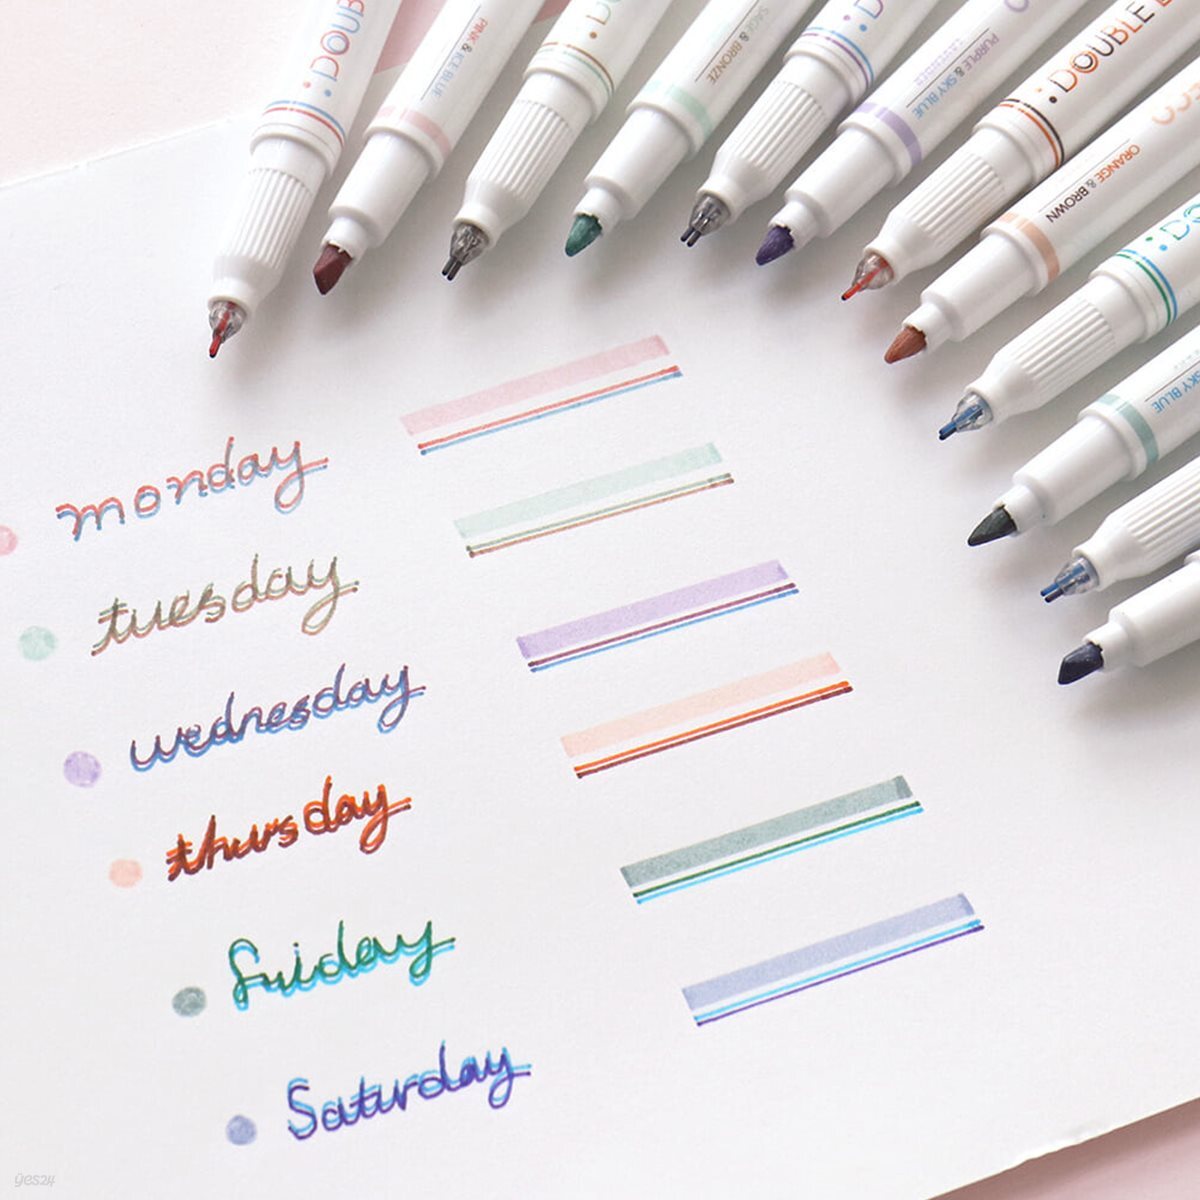 PINK & ICE BLUE
SAGE & BRONZE
PURPLE & SKY BLUE
LAVENDER
DOUBLE
ORANGE & BROWN
SKY BLUE
monday
tuesday
wednesday
thursday
friday
Saturday
yes24